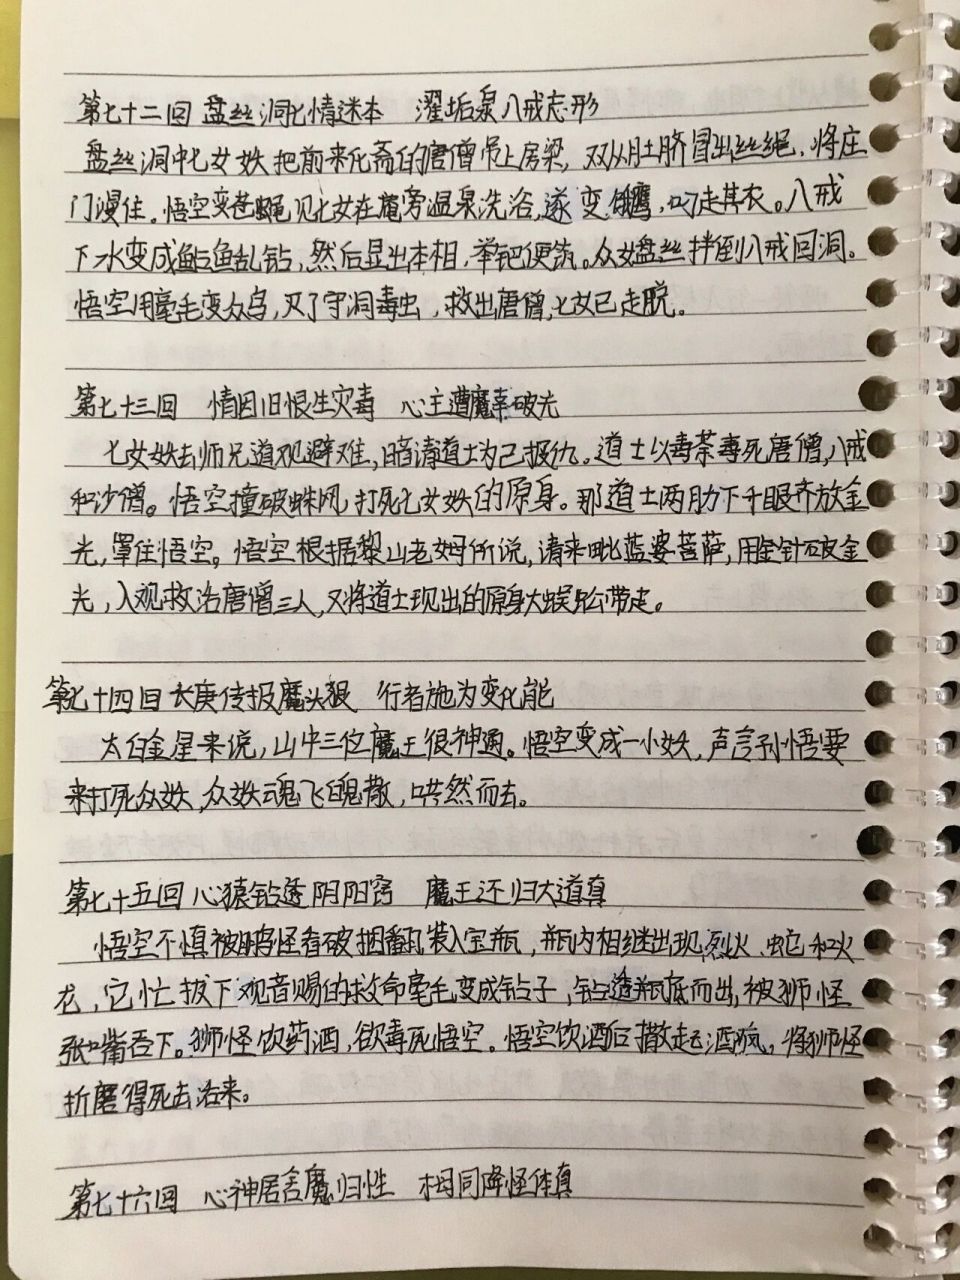 第七十二回 盘丝洞七情迷本 濯垢泉八戒忘形
盘丝洞中七女妖把前来化斋的唐僧吊上房梁,双从肚脐冒出丝绳,将庄
门漫住。悟空变苍蝇见七女在庵旁温泉洗浴,遂变饿鹰,叼走其衣。八戒
下水变成鲇鱼乱钻,然后显出本相,举钯便筑。众女盘丝拌倒八戒回洞。
悟空用毫毛变众鸟,灭了守洞毒虫,救出唐僧,七女已走脱。
第七十三回 情因旧恨生灾毒 心主遭魔幸破光
七女妖去师兄道观避难,暗请道士为己报仇。道士以毒茶毒死唐僧,八戒
和沙僧。悟空撞破蛛网,打死七女妖的原身。那道士两肋下千眼齐放金
光,罩住悟空。悟空根据黎山老姆所说,请来毗蓝婆菩萨,用金针破金
光,入观救治唐僧三人,又将道士现出的原身大蜈蚣带走。
第七十四回 长庚传报魔头狠 行者施为变化能
太白金星来说,山中三位魔王很神通。悟空变成一小妖,声言孙悟要
来打死众妖,众妖魂飞魄散,哄然而去。
第七十五回 心猿钻透阴阳窍 魔王还归大道真
悟空不慎被鹏怪看破捆翻装入宝瓶,瓶内相继出现烈火、蛇和火
龙,它忙拔下观音赐的救命毫毛变成钻子,钻透瓶底而出,被狮怪
张嘴吞下。狮怪饮药酒,欲毒死悟空。悟空饮酒后撒起酒疯,将狮怪
折磨得死去活来。
第七十六回 心神居舍魔归性 木母同降怪体真